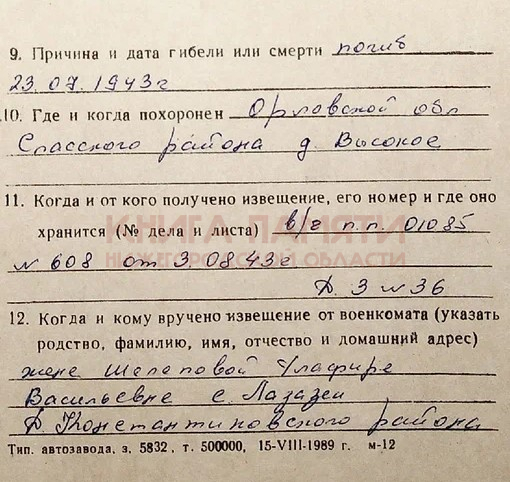 9. Причина и дата гибели или смерти погиб
23.07.1943г
10. Где и когда похоронен Орловской обл
Спасского района д. Высокое
11. Когда и от кого получено извещение, его номер и где оно
хранится (№ дела и листа) в/ч п.п. 01085
КНИГА ПАМЯТИ
№ 608 от 3.08.43г
НИЖЕГОРОДСКОЙ ОБЛАСТИ
Д. 3 л 36
12. Когда и кому вручено извещение от военкомата (указать
родство, фамилию, имя, отчество и домашний адрес)
жене Шелеповой Глафире
Васильевне с. Лазазеи
Д. Константиновского района
Тип. автозавода, з. 5832, т. 500000, 15-VIII-1989 г. м-12